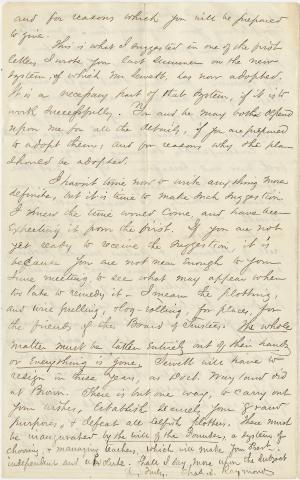 and for reasons which you will be prepared
to give.
This is what I suggested in one of the first
letters I wrote you last summer on the new
system, of which Mr. Jewett, has now adopted.
It is a necessary part of that system, if it is to
work successfully. You and he may both depend
upon me for all the details, if you are prepared
to adopt them, and for reasons why the plan
should be adopted.
I havn't time now to write any thing more
definite, but it is time to make such suggestion
I knew the time would come, and have been
expecting it from the first. If you are not
yet ready to receive the suggestion, it is
because you are not near enough to your
June meeting to see what may appear when
too late to remedy it. I mean the plotting,
and wire pulling, & log-rolling for places, for
the friends of the Board of Trustees. The whole
matter must be taken entirely out of their hands
or Everything is gone. Jewett will have to
resign in three years, as Doct. Wayland did
at Brown. There is but one way, to carry out
your wishes, establish securely your grand
purposes, & defeat all selfish plotters. There must
be inaugurated by the will of the Founder, a system of
choosing, & managing teachers, which will make you
independent and absolute. Shall I say more upon the subject
Yours, Chas. A. Raymond